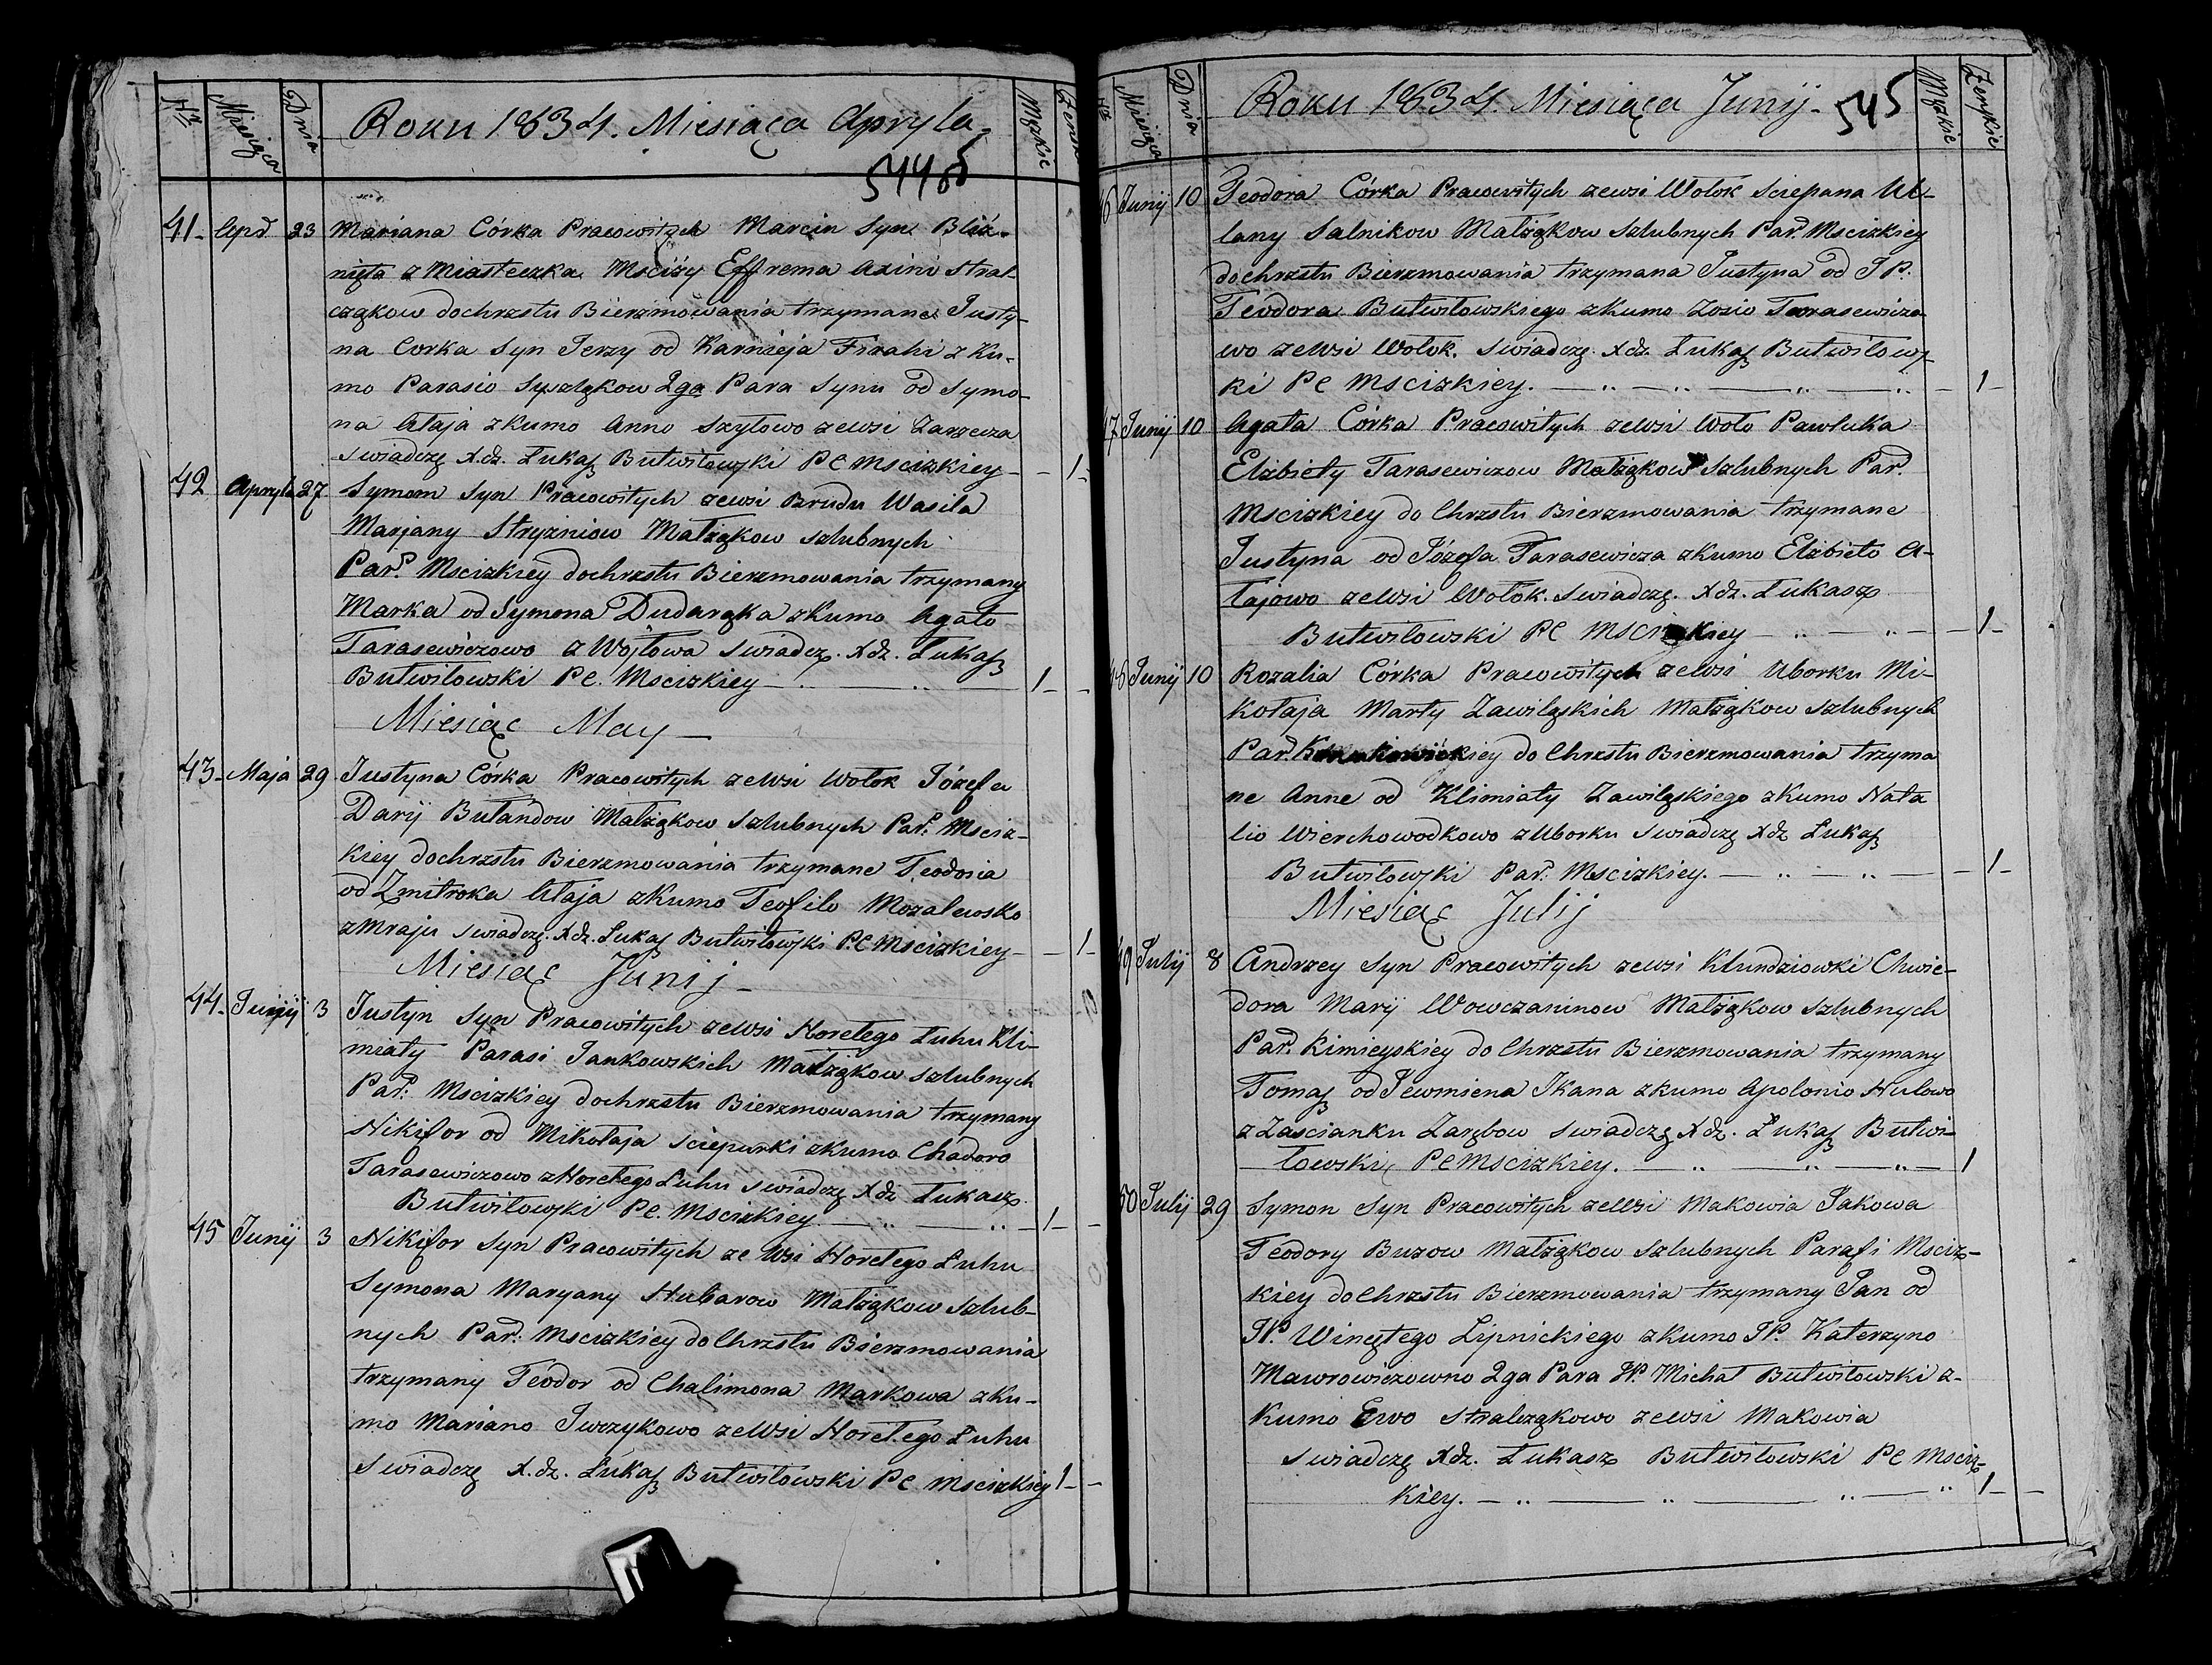 Nro Miesiąca Dnia Roku 1834. Miesiąca Apryla. Męzkie Żeńs
544 об
41 Apr. 23 Mariana Córka Pracowitych Marcin Syn Bliź-
nięta z Miasteczka Mscižy Effrema Axini Stral-
cząkow dochrztu Bierzmowania trzymane Justy-
na Corka Syn Jerzy od Karnieja Firahi z Ku-
mo Parasio 2ga Para Synu od Symo-
na Ałaja zkumo Anno Szyłowo zewsi Zarzecza
Swiadczę Xdz. Łukasz Butwiłowski PC Mscizkiey 1
42 Apryla 27 Symom Syn Pracowitych zewsi Brudu Wasila
Marjany Stryżniow Małżąkow szlubnych
Par. Mscizkiey dochrztu Bierzmowania trzymany
Marka od Symona Dudarąka zkumo Agato
Tarasewiczowo z Wojtowa Swiadcz. Xdz. Łukasz
Butwiłowski PC. Mscizkiey 1
Miesiąc May
43 Maja 29 Justyna Córka Pracowitych zewsi Wołok Józefa
Darij Butandow Małżąkow szlubnych Par. Msciz-
kiey dochrztu Bierzmowania trzymane Teodosia
od Zmitroka Ałaja zkumo Teofilo Mozalewsko
zMraju swiadczę. Xdz. Łukasz Butwiłowski PC Mscizkiey 1
Miesiąc Junij
44 Junij 3 Justyn Syn Pracowitych zewsi Horełego Łuhu Kli-
miaty Parasi Jankowskich Małżąkow szlubnych
Par: Mscizkiey dochrztu Bierzmowania trzymany
Nikifor od Mikołaja Sciepurki zkumo Chadoro
Tarasewiczowo zHorełego Łuhu swiadczę Xdz Łukasz
Butwiłowski PC. Mscizkiey 1
45 Junij 3 Nikifor Syn Pracowitych ze Wsi Horełego Łuhu
Symona Maryany Hubarow Małżąkow szlub-
nych Par: Mscizkiey do Chrztu Bierzmowania
trzymany Teodor od Chalimona Markowa zKu-
mo Mariano Jurzykowo zewsi Horełego Łuhu
Swiadczę X.dz. Łukasz Butwiłowski PC Mscizkiey 1
Nro Miesiąca Dnia Roku 1834. Miesiąca Junij. 545 Męzkie Żeńskie
46 Junij 10 Teodora Córka Pracowitych zewsi Wołok Sciepana Ul-
lany Salnikow Małżąkow szlubnych Par. Mscizkiey
dochrztu Bierzmowania trzymana Justyna od JP.
Teodora Butwiłowskiego zkumo Zosio Tarasewiczo
wo zewsi Wołok. Swiadczę. Xdz. Łukasz Butwiłows-
ki PC Mscizkiey. 1
47 Junij 10 Agata Córka Pracowitych zewsi Woło Pawluka
Elżbiety Tarasewiczow Małżąkow szlubnych Par.
Mscizkiey do Chrztu Bierzmowania trzymane
Justyna od Józefa Tarasewicza zkumo Elżbieto A-
łajowo zewsi Wołok. swiadczę. Xdz. Łukasz
Butwiłowski PC Mscizkiey 1
48 Junij 10 Rozalia Córka Pracowitych zewsi Uborku Mi-
kołaja Marty Zawiląskich Małżąkow szlubnych
Par. do Chrztu Bierzmowania trzyma
ne Anne od Klimiaty Zawiląskiego zkumo Nata
lio Wierchowodkowo zUborku Swiadczę Xdz Łukasz
Butwiłowski Par: Mscizkiey. 1
Miesiąc Julij
49 Julij 8 Andrzey Syn Pracowitych zewsi Klundziowki Chwie-
dora Marij Wowczaninow Małżąkow szlubnych
Par. Kimieyskiey do Chrztu Bierzmowania trzymany
Tomasz od Jewmiena Jkana zkumo Apolonio Hulowo
z Zascianku Zarębow swiadczę Xdz. Łukasz Butwi-
łowski PC Mscizkiey. 1
50 Julij 29 Symon Syn Pracowitych zewsi Makowia Jakowa
Teodory Buzow Małżąkow szlubnych Parafi Msciz-
kiey do Chrztu Bierzmowania trzymany Jan od
JP. Winçętego Lipnickiego zkumo JP. Katerzyno
Mawrowiczowno 2ga Para JP. Michał Butwiłowski z-
kumo Ewo Stralcząkowo zewsi Makowia
swiadczę Xdz. Łukasz Butwiłowski PC Msciz-
kiey. 1